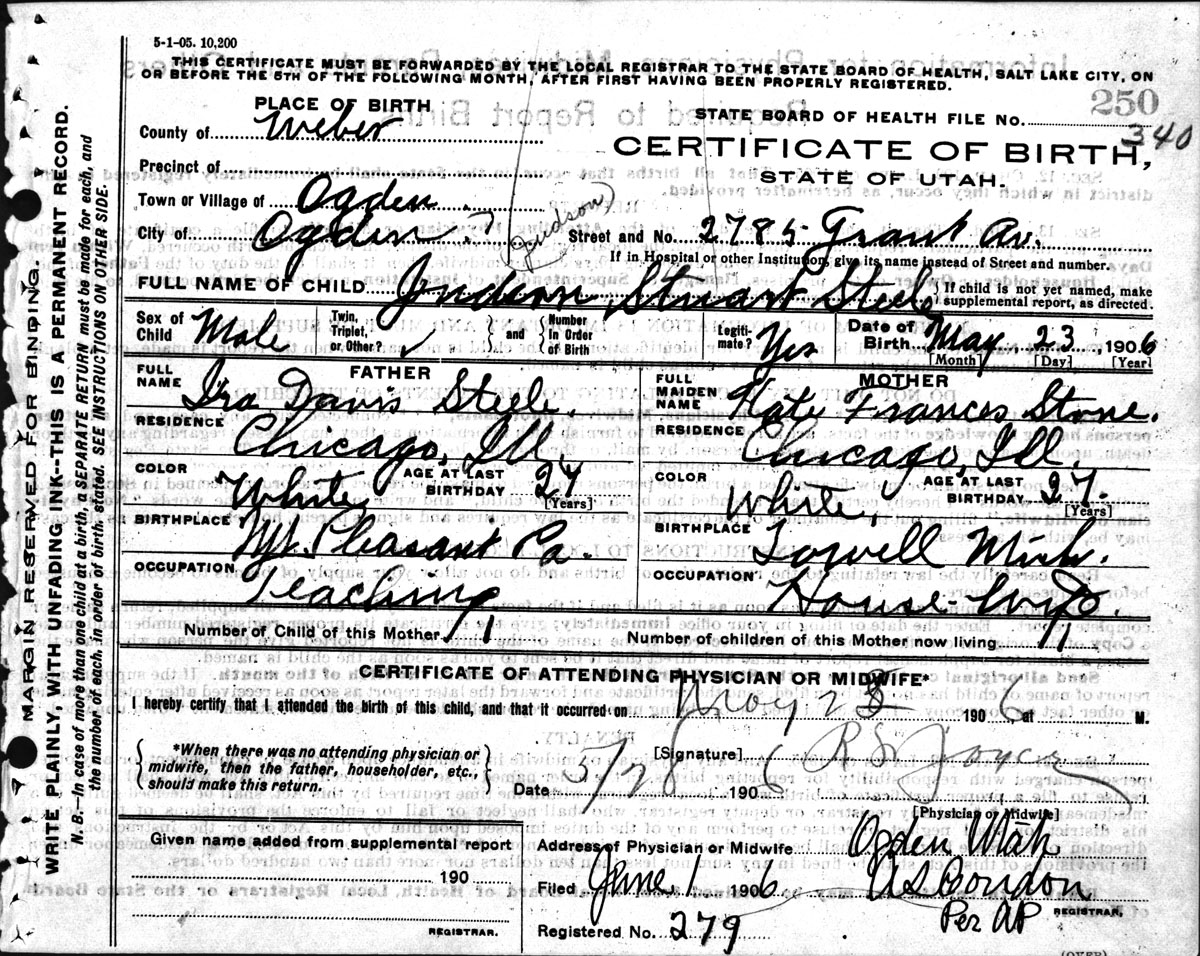 5-1-05. 10,200
THIS CERTIFICATE MUST BE FORWARDED BY THE LOCAL REGISTRAR TO THE STATE BOARD OF HEALTH, SALT LAKE CITY, ON
OR BEFORE THE 5TH OF THE FOLLOWING MONTH, AFTER FIRST HAVING BEEN PROPERLY REGISTERED.
250
PLACE OF BIRTH
STATE BOARD OF HEALTH FILE NO.
340
County of Weber
CERTIFICATE OF BIRTH,
STATE OF UTAH.
Precinct of
Town or Village of Ogden
(Judson)
City of Ogden Street and No. 2785 Grant Av.
If in Hospital or other Institution, give its name instead of Street and number.
FULL NAME OF CHILD Judson Stuart Steele { If child is not yet named, make supplemental report, as directed.
Sex of Child Male Twin, Triplet, or Other? ✓ } and { Number In Order of Birth Legiti-mate? Yes Date of Birth May 23, 1906
[Month] [Day] [Year]
FATHER
FULL NAME Ira Davis Steele.
RESIDENCE Chicago, Ill.
COLOR White AGE AT LAST BIRTHDAY 27 [Years]
BIRTHPLACE Mt. Pleasant Pa.
OCCUPATION Teaching
MOTHER
FULL MAIDEN NAME Kate Frances Stone.
RESIDENCE Chicago, Ill.
COLOR White, AGE AT LAST BIRTHDAY 27. [Years]
BIRTHPLACE Lowell Mich.
OCCUPATION House-Wife.
Number of Child of this Mother 1
Number of children of this Mother now living 1
CERTIFICATE OF ATTENDING PHYSICIAN OR MIDWIFE*
I hereby certify that I attended the birth of this child, and that it occurred on May 23 1906 at M.
{ *When there was no attending physician or midwife, then the father, householder, etc., should make this return. }
[Signature] R S Joyce
Date 5/28 1906
[Physician or Midwife]
Given name added from supplemental report
190
REGISTRAR.
Address of Physician or Midwife Ogden Utah
Filed June 1 1906
REGISTRAR.
Per AP
Registered No. 279
(OVER)
MARGIN RESERVED FOR BINDING.
WRITE PLAINLY WITH UNFADING INK--THIS IS A PERMANENT RECORD.
N. B.--In case of more than one child at a birth, a SEPARATE RETURN must be made for each, and
the number of each, in order of birth, stated. SEE INSTRUCTIONS ON OTHER SIDE.